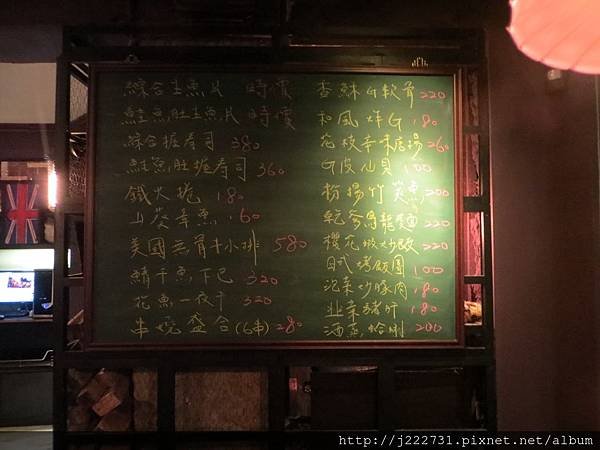 綜合生魚片 時價
鮭魚肚生魚片 時價
綜合握壽司 380
鮭魚肚握壽司 360
鐵火捲 180
山葵章魚 160
美國無骨牛小排 580
鯖魚下巴 320
花魚一夜干 320
串燒盛合(6串) 280
香酥G軟骨 220
和風炸G 180
花枝 260
G皮仙貝 100
粉揚竹筴魚 200
乾炒烏龍麵 220
櫻花蝦炒飯 220
日式烤飯團 100
泡菜炒豚肉 180
韭菜豬肝 180
酒蒸蛤蜊 200
http://j222731.pixnet.net/album